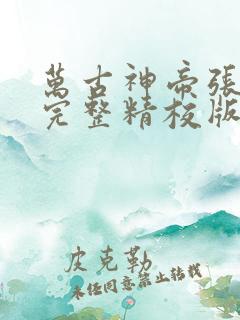 萬古神帝張
完整精校版
皮克勒
未经同意禁止转载